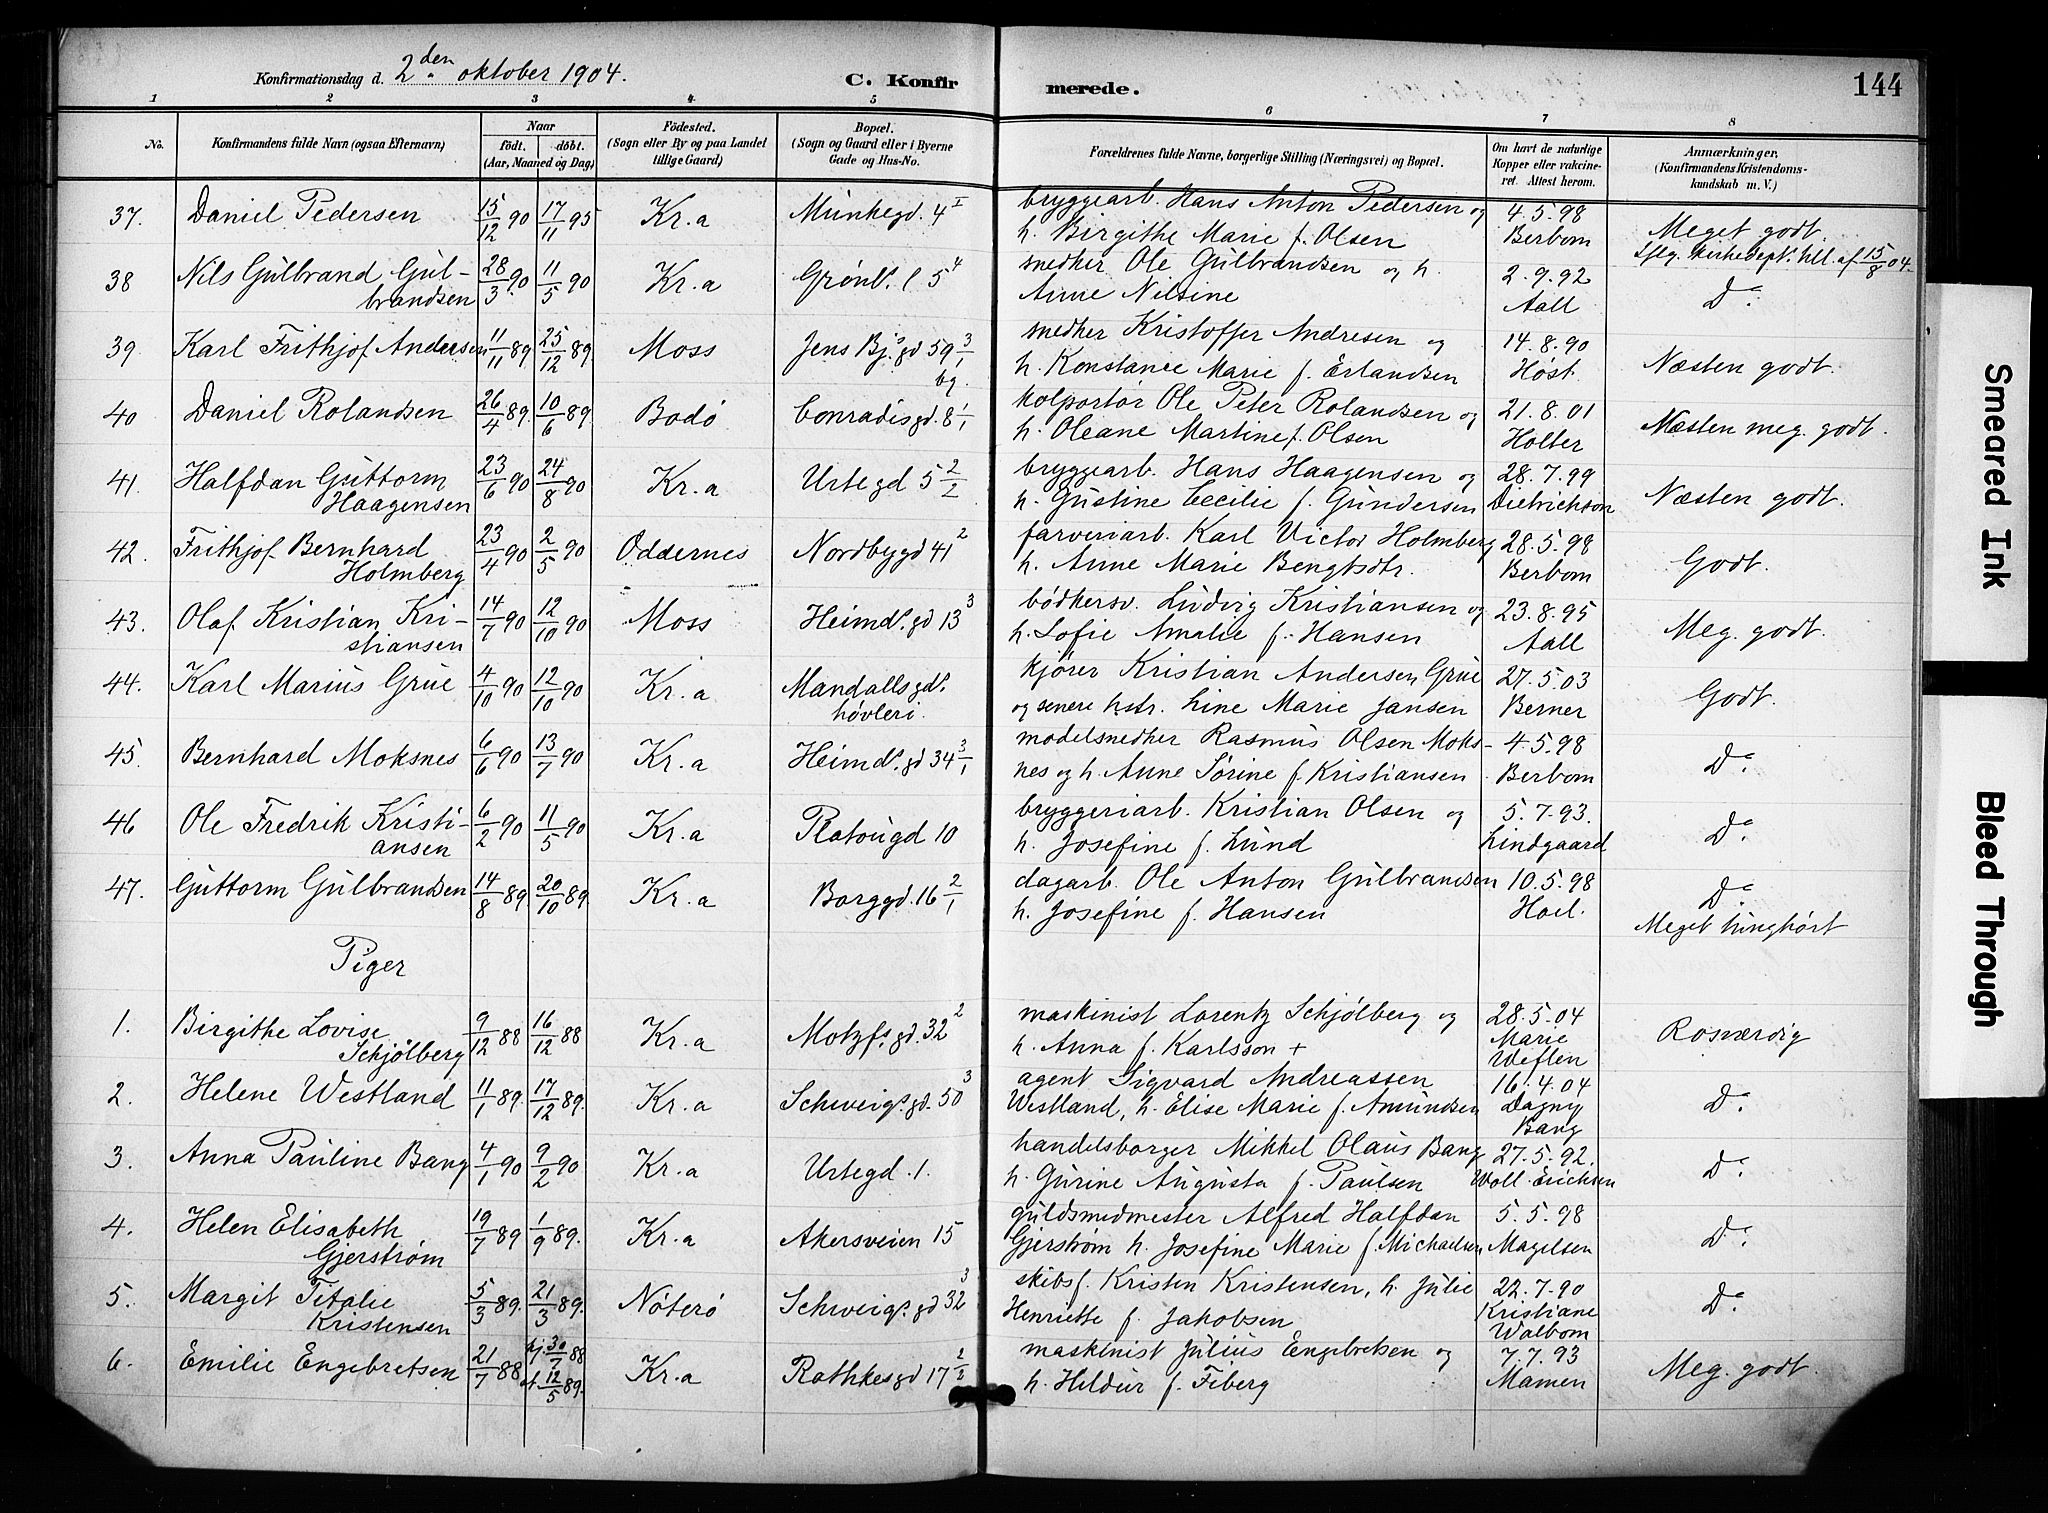 Konfirmationsdag d. 2den oktober 1904.
C. Konfirmerede.
144
1 2 3 4 5 6 7 8
No.
Konfirmandens fulde Navn (ogsaa Efternavn)
Naar
födt. döbt.
(Aar, Maaned og Dag)
Födested.
(Sogn eller By og paa Landet
tillige Gaard)
Bopæl.
(Sogn og Gaard eller i Byerne
Gade og Hus-No.
Forældrenes fulde Navne, borgerlige Stilling (Næringsvei) og Bopæl.
Om havt de naturlige
Kopper eller vakcine-
ret. Attest herom.
Anmærkninger.
(Konfirmandens Kristendoms-
kundskab m. V.)
37. Daniel Pedersen 15/12 90 17/11 95 Kr.a Munkegd. 4 I bryggearb. Hans Anton Pedersen og 4.5.98 Meget godt.
h. Birgithe Marie f. Olsen Berbom
Iflg. kirkedept. till. af 15/8 04.
38 Nils Gulbrand Gul- 28/3 90 11/5 90 Kr.a Grønl. l 5 4 snedker Ole Gulbrandsen og h. 2.9.92 Do.
brandsen Anne Nilsine Aall
39 Karl Frithjof Andersen 11/11 89 25/12 89 Moss Jens Bj.s gd 59 3/1 snedker Kristoffer Andresen og 14.8.90 Næsten godt.
bg. h. Konstance Marie f. Erlandsen Høst.
40 Daniel Rolandsen 26/4 89. 10/6 89. Bodø Conradisgd. 8 1/1 kolportør Ole Peter Rolandsen og 21.8.01 Næsten meg. godt.
h. Oleane Martine f. Olsen Holter
41. Halfdan Guttorm 23/6 90 24/8 90 Kr.a Urtegd 5 2/2 bryggearb. Hans Haagensen og 28.7.99 Næsten godt.
Haagensen h. Gustine Cecilie f. Gundersen Dietrichson
42. Frithjof Bernhard 23/4 90 2/5 90 Oddernes Nordbygd 41 2 farveriarb. Karl Victor Holmberg 28.5.98 Godt.
Holmberg h. Anne Marie Bengtsdtr. Berbom
43. Olaf Kristian Kri- 14/7 90 12/10 90 Moss Heimd.s gd 13 3 bødkersv. Ludvig Kristiansen og 23.8.95 Meg. godt.
stiansen h. Sofie Amalie f. Hansen Aall
44. Karl Marius Grue 4/10 90 12/10 90 Kr.a Mandallsgd.s kjører Kristian Andersen Grue 27.5.03 Godt.
høvleri. og senere hstr. Line Marie Jansen Berner
45. Bernhard Moksnes 6/6 90 13/7 90 Kr.a Heimd.s gd 34 3/1 modelsnedker Rasmus Olsen Moks- 4.5.98 Do.
nes og h. Anne Sørine f. Kristiansen Berbom
46 Ole Fredrik Kristi- 6/2 90 11/5 90 Kr.a Platougd 10 bryggeriarb. Kristian Olsen og 5.7.93. Do.
ansen h. Josefine f. Lund Lindgaard
47. Guttorm Gulbrandsen 14/8 89. 20/10 89. Kr.a Borggd. 16 2/1 dagarb. Ole Anton Gulbrandsen 10.5.98 Do.
h. Josefine f. Hansen Hoel. Meget tunghørt
Piger
1. Birgithe Lovise 9/12 88 16/12 88 Kr.a Motzf.s gd. 32 2 maskinist Lorentz Schjölberg og 28.5.04 Rosværdig
Schjölberg h. Anna f. Karlsson + Marie
Weflen
2. Helene Westland 11/1 89. 17/12 89. Kr.a Schweig.s gd. 50 3 agent Sigvard Andreassen 16.4.04 Do.
Westland, h. Elise Marie f. Amundsen Dagny
Bang
3. Anna Pauline Bang 4/1 90 9/2 90 Kr.a Urtegd. 1. handelsborger Mikkel Olaus Bang 27.5.92. Do.
h. Gurine Augusta f. Paulsen Woll Erichsen
4. Helen Elisabeth 19/7 89 1/9 89. Kr.a Akersveien 15 guldsmedmester Alfred Halfdan 5.5.98 Do.
Gjerstrøm Gjerstrøm h. Josefine Marie f. Michaelsen Magelsen
5. Margit Titalie 5/3 89. 21/3 89. Nöterö Schweig.s gd 32 3 skibsf. Kristen Kristensen, h. Julie 22.7.90 Do.
Kristensen Henriette f. Jakobsen Kristiane
Walbom
6. Emilie Engebretsen 21/7 88 hj. 30/7 88 Kr.a Rathkesgd 17 2/2 maskinist Julius Engebretsen og 7.7.93 Meg. godt.
12/5 89. h. Hildur f. Fiberg Mamen
Smeared Ink
Bleed Through